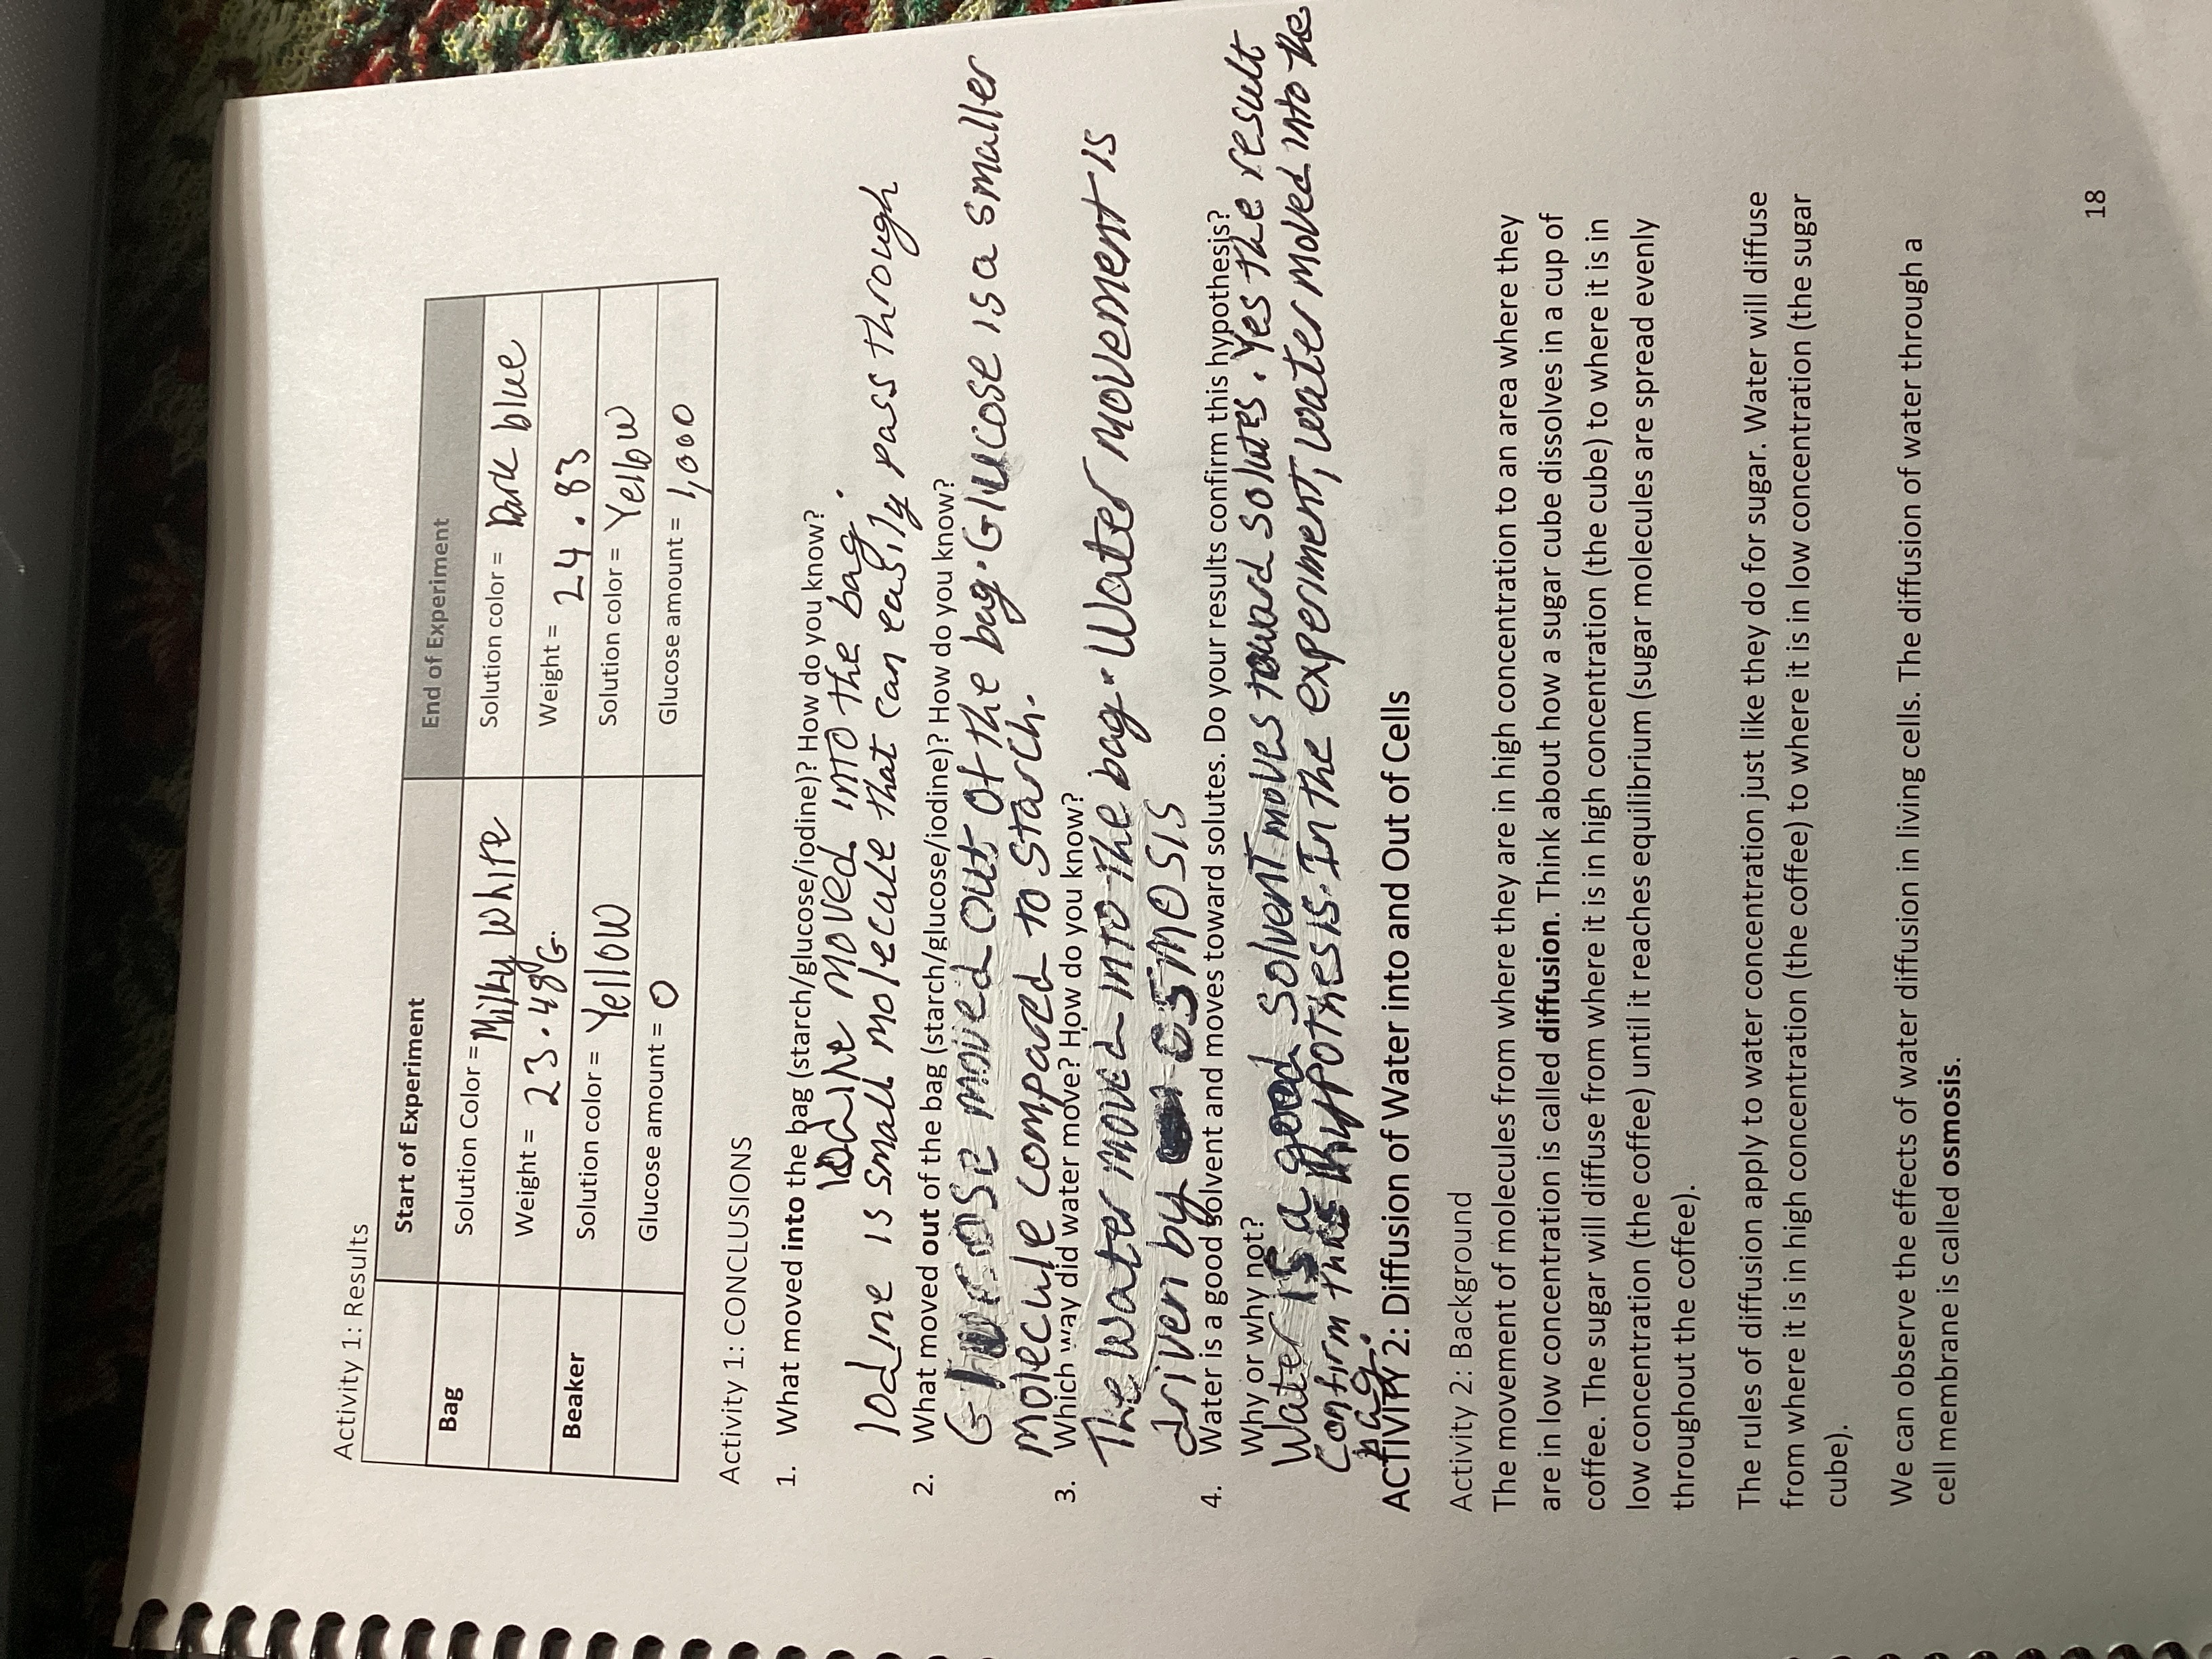 Activity 1: Results
Start of Experiment
End of Experiment
Bag
Solution Color = Milky White
Solution color = Dark blue
Weight = 23.48G.
Weight = 24.83
Beaker
Solution color = Yellow
Solution color = Yellow
Glucose amount = 0
Glucose amount = 1,000
Activity 1: CONCLUSIONS
1. What moved into the bag (starch/glucose/iodine)? How do you know?
Iodine moved into the bag.
Iodine is small molecule that can easily pass through
2. What moved out of the bag (starch/glucose/iodine)? How do you know?
Glucose moved out of the bag. Glucose is a smaller
molecule compared to starch.
3. Which way did water move? How do you know?
The Water moved into the bag. Water movement is
driven by osmosis
4. Water is a good solvent and moves toward solutes. Do your results confirm this hypothesis?
Why or why not?
Water is a good solvent moves toward solutes. Yes the result
Confirm this hypothesis. In the experiment, water moved into the
bag.
ACTIVITY 2: Diffusion of Water into and Out of Cells
Activity 2: Background
The movement of molecules from where they are in high concentration to an area where they
are in low concentration is called diffusion. Think about how a sugar cube dissolves in a cup of
coffee. The sugar will diffuse from where it is in high concentration (the cube) to where it is in
low concentration (the coffee) until it reaches equilibrium (sugar molecules are spread evenly
throughout the coffee).
The rules of diffusion apply to water concentration just like they do for sugar. Water will diffuse
from where it is in high concentration (the coffee) to where it is in low concentration (the sugar
cube).
We can observe the effects of water diffusion in living cells. The diffusion of water through a
cell membrane is called osmosis.
18